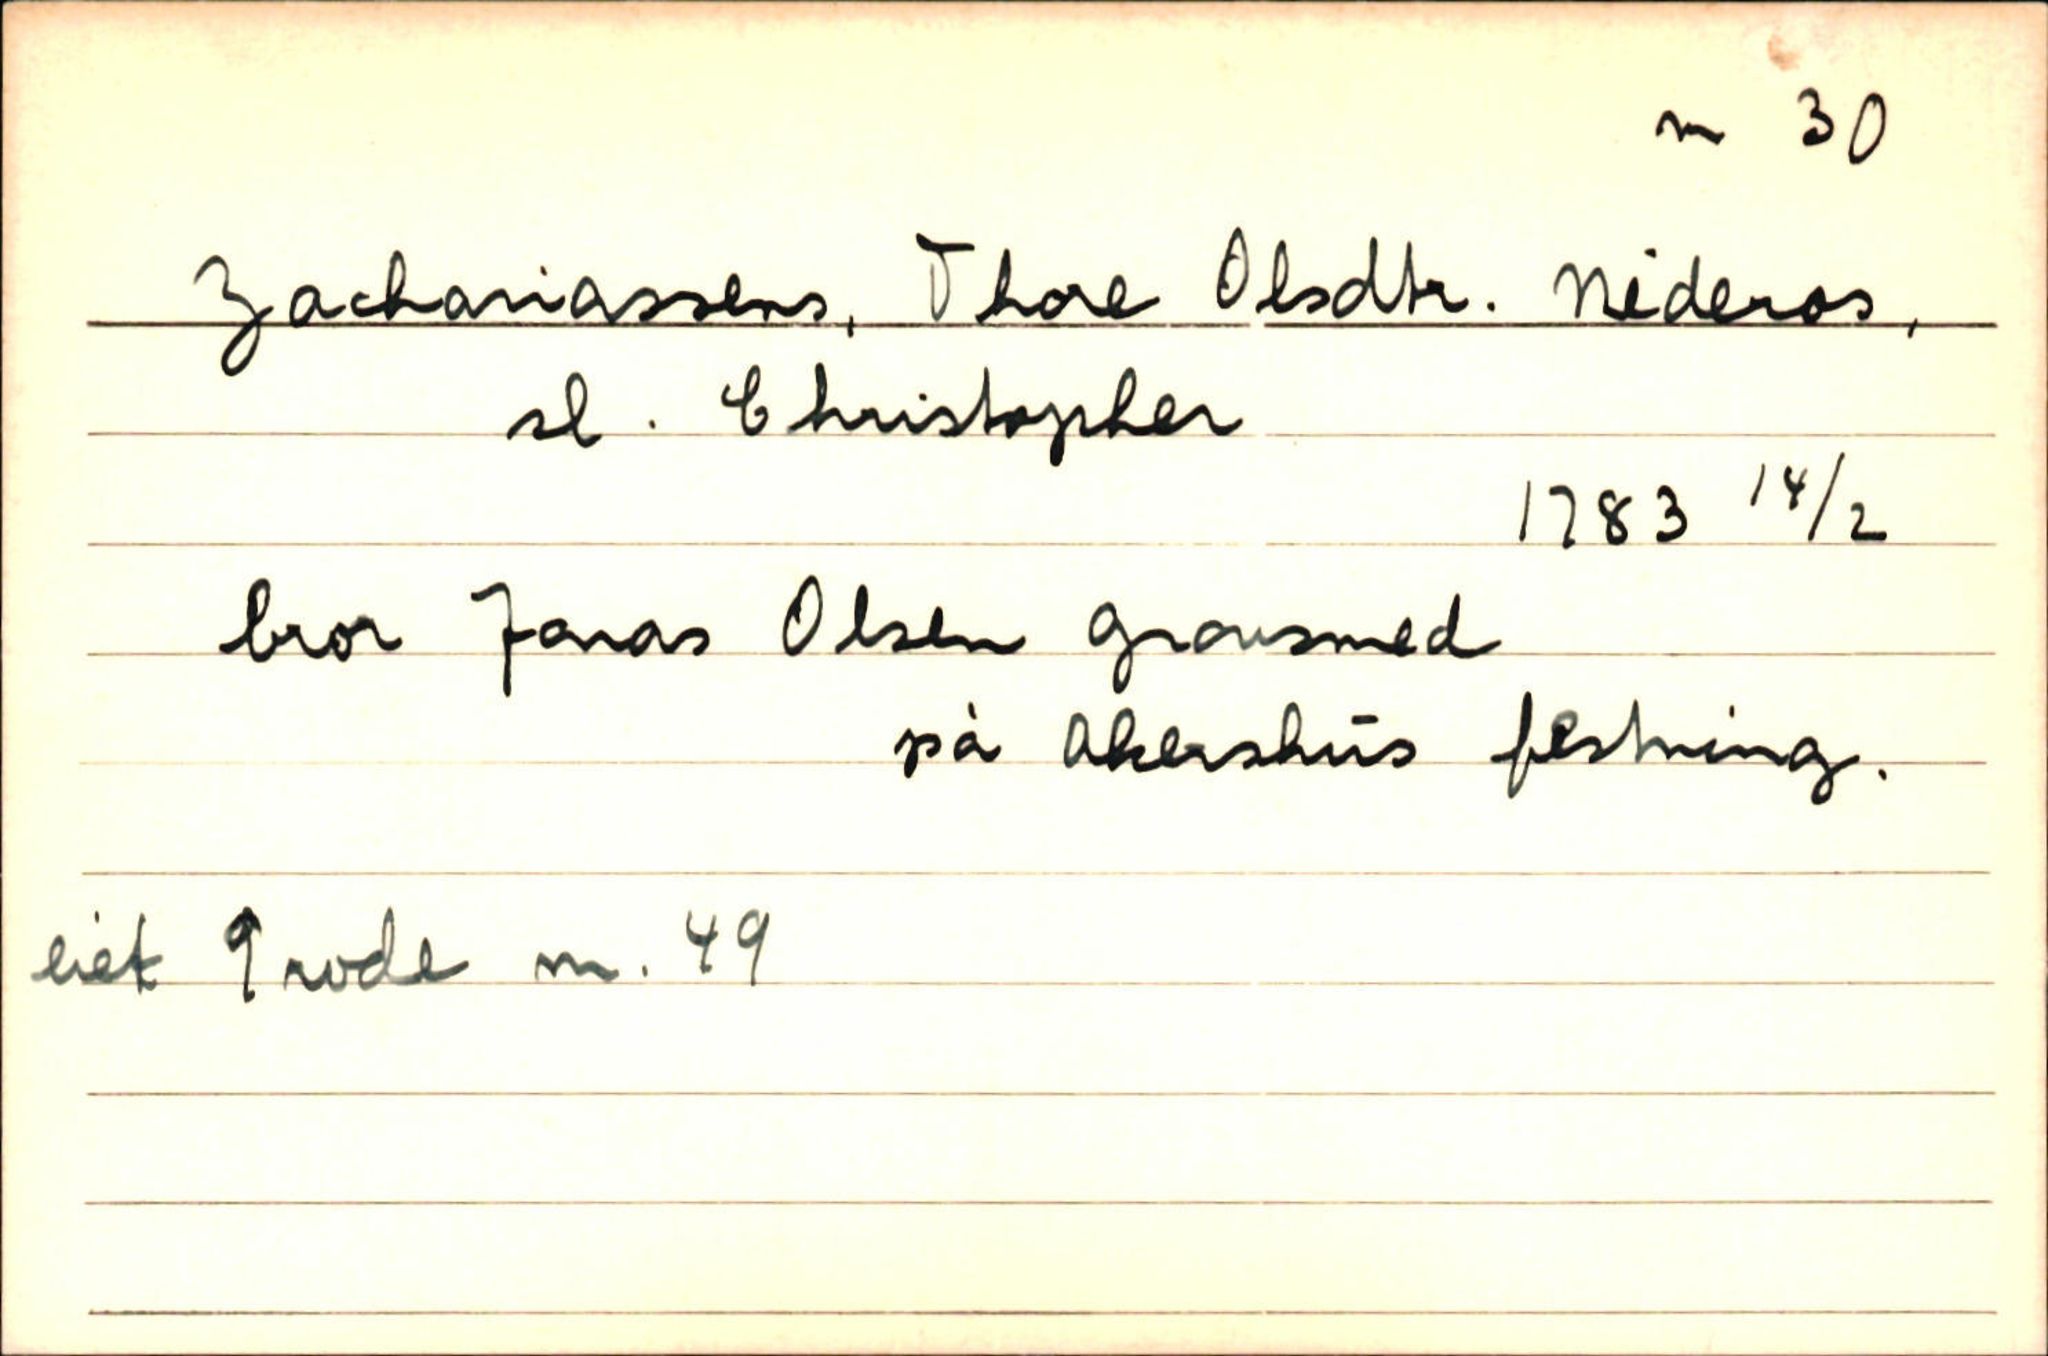 m 30
Zachariassens, Thore Olsdtr. Nideros,
sl. Christopher
1783 14/2
bror Jonas Olsen grovsmed
på Akershus festning.
eiet 9 rode nr. 49